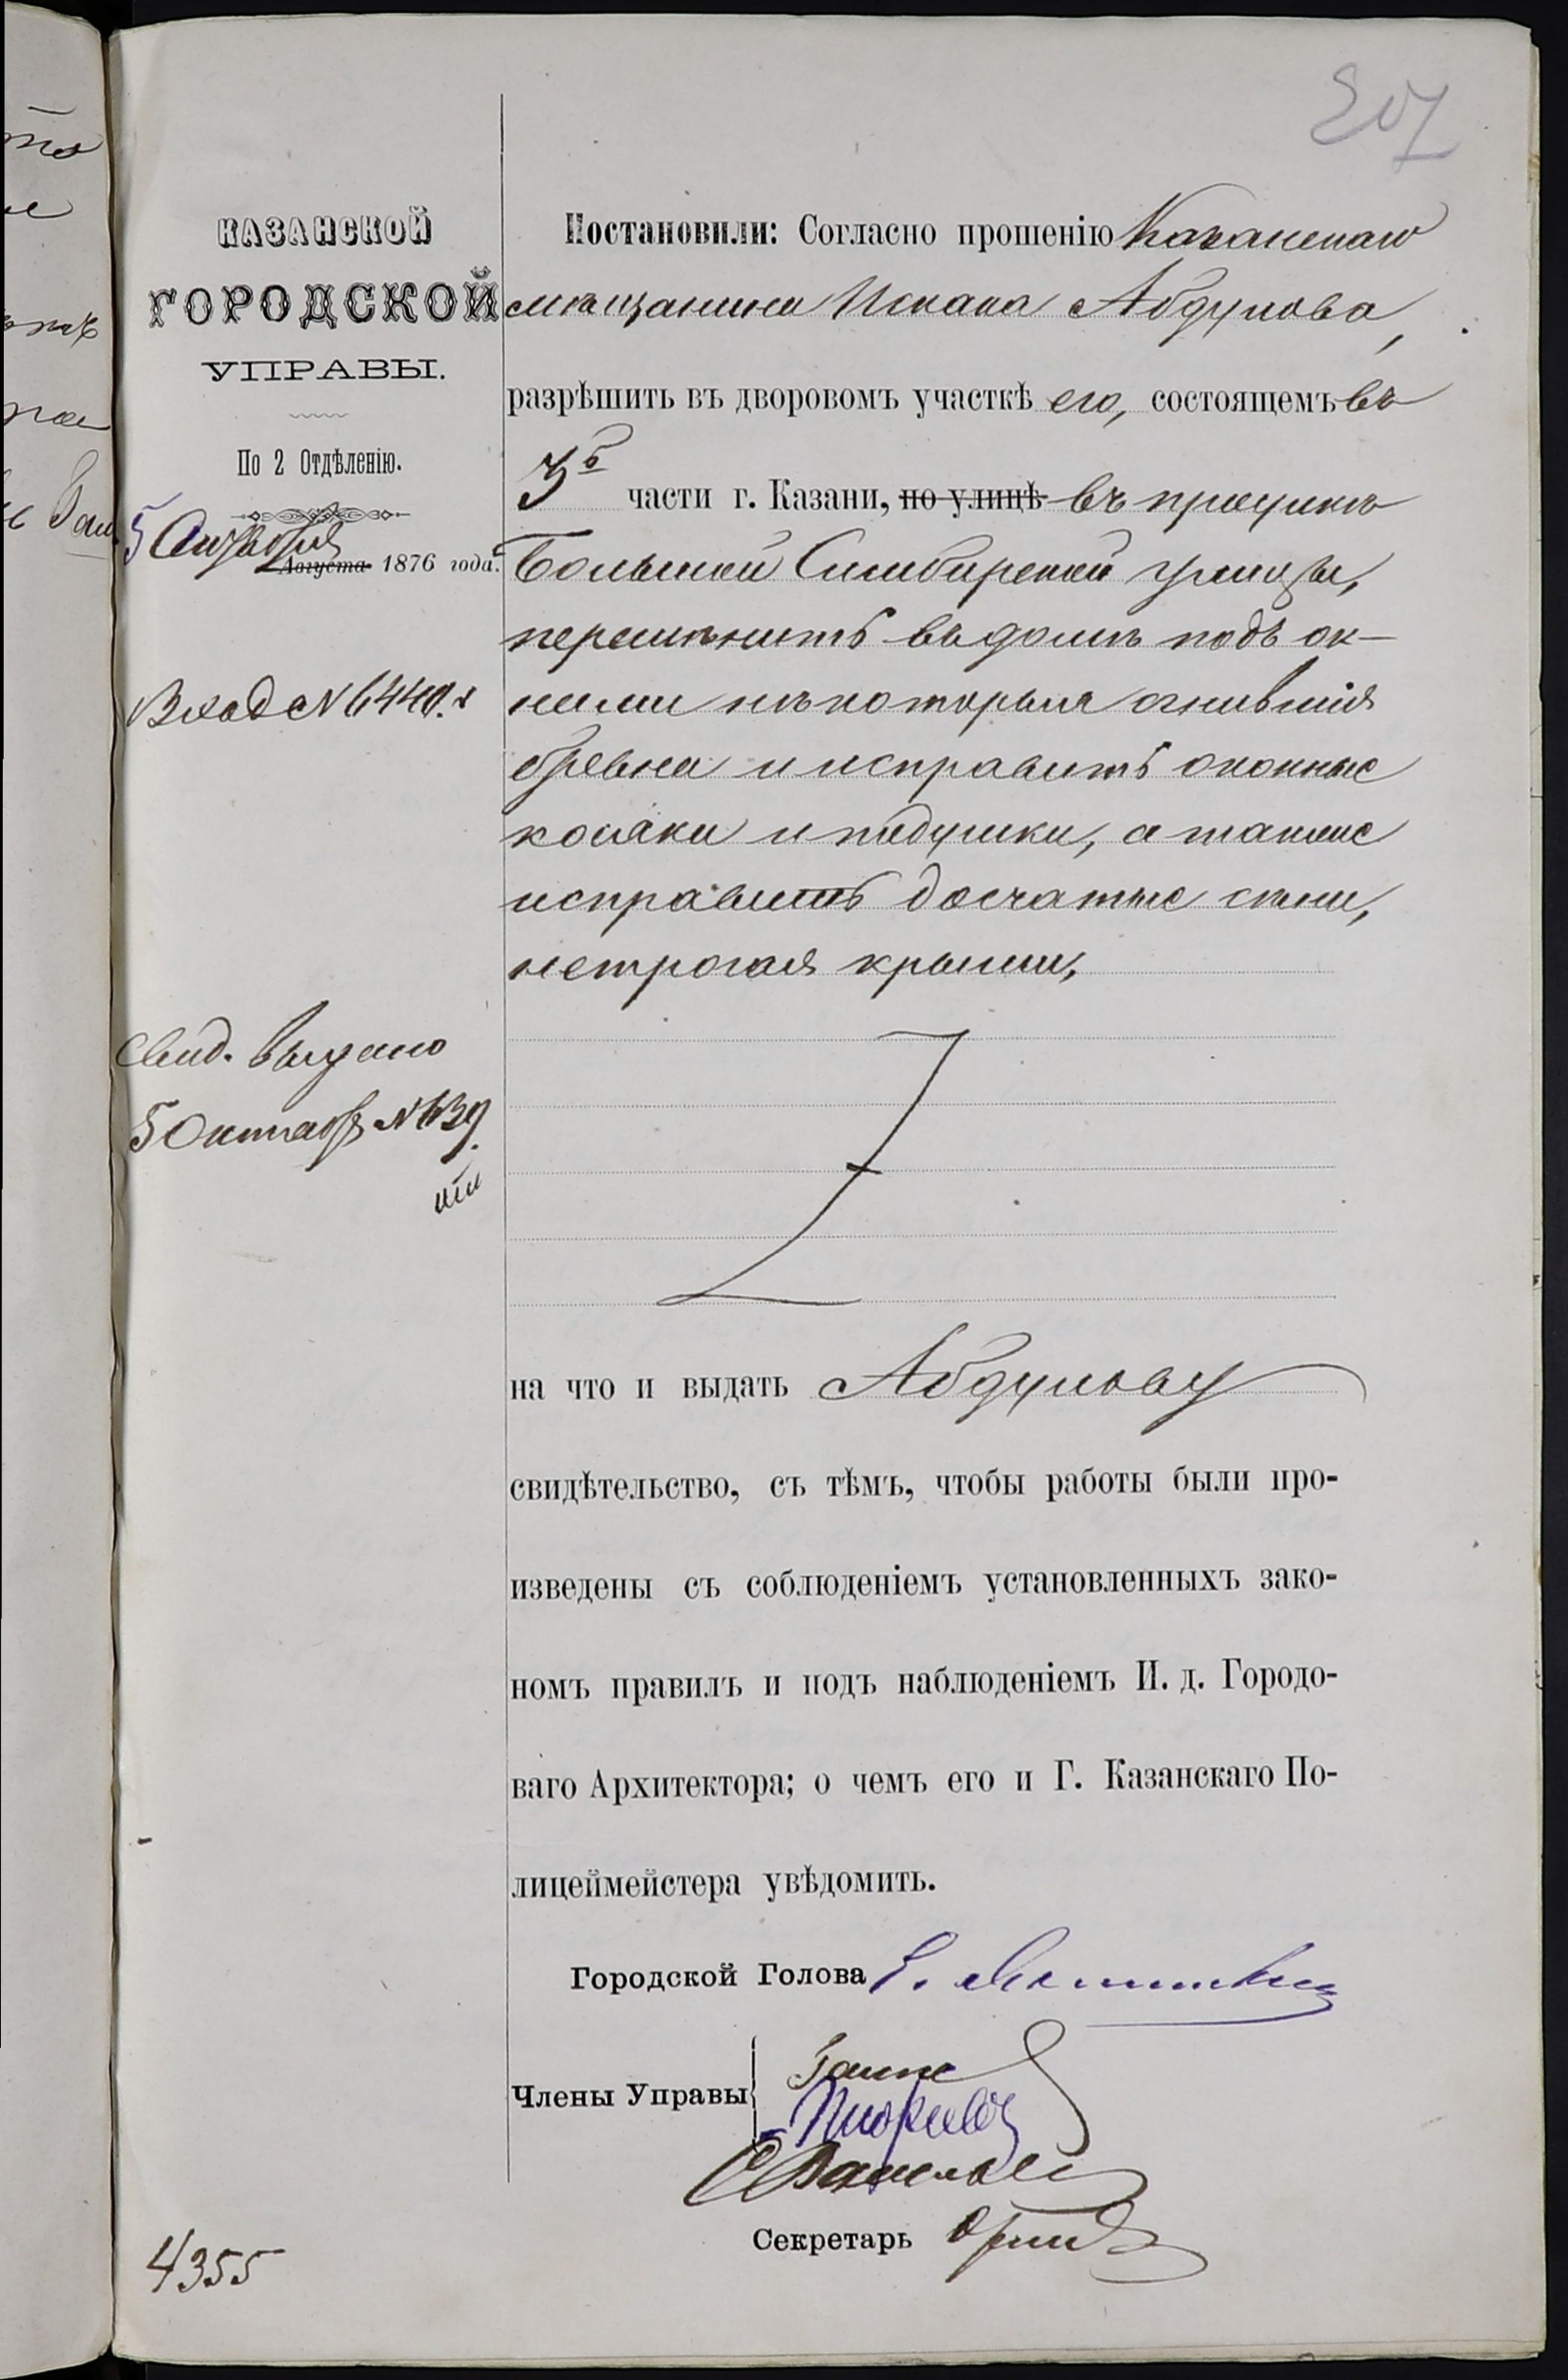 207
КАЗАНСКОЙ
ГОРОДСКОЙ
УПРАВЫ.
По 2 Отдѣленію.
5 Октября
Августа 1876 года.
Вход N 6440.
Свид. выдано
5 Октяб N 639.
Постановили: Согласно прошенію Казанскаго
мѣщанина Исхака Абдулова,
разрѣшить въ дворовомъ участкѣ его, состоящемъ въ
3й части г. Казани, по улицѣ въ проулкѣ
Большой Симбирской улицы,
перемѣнить въ домѣ подъ ок-
нами нѣкоторыя сгнившія
бревна и исправить оконные
косяки и подушки, а также
исправить досчатые сѣни,
нетрогая крыши,
на что и выдать Абдулову
свидѣтельство, съ тѣмъ, чтобы работы были про-
изведены съ соблюденіемъ установленныхъ зако-
номъ правилъ и подъ наблюденіемъ И. д. Городо-
ваго Архитектора; о чемъ его и Г. Казанскаго По-
лицеймейстера увѣдомить.
Городской Голова
Члены Управы
Секретарь
4355